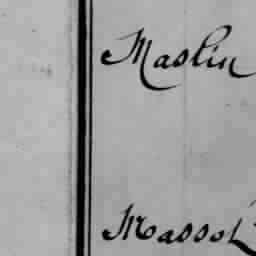 Maslin
Massol